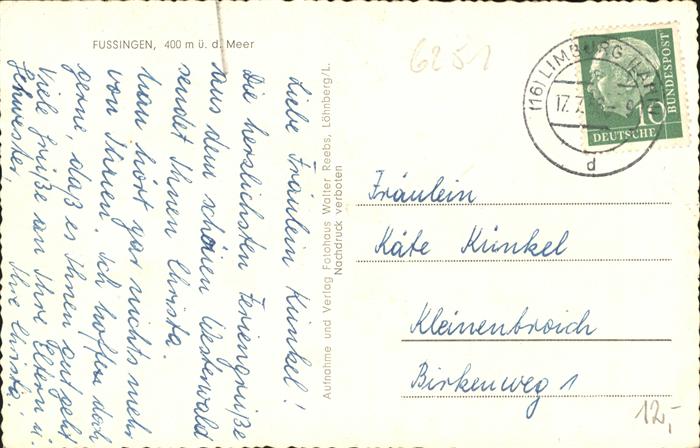 FUSSINGEN, 400 m ü. d. Meer
Liebe Fräulein Künkel!
Die herzlichsten Feriengrüße
aus dem schönen Westerwald
sendet Ihnen Christa.
Man hört gar nichts mehr
von Ihnen. Ich hoffen doch
gerne daß es Ihnen gut geht
Viele Grüße an Ihre Eltern u.
Schwester Ihre Christa!
Aufnahme und Verlag Fotohaus Walter Reebs, Löhnberg/L.
Nachdruck verboten
6251
(16) LIMBURG (LAHN)
17.7.
d
10
DEUTSCHE
BUNDESPOST
Fräulein
Käte Künkel
Kleinenbroich
Birkenweg 1
12,-